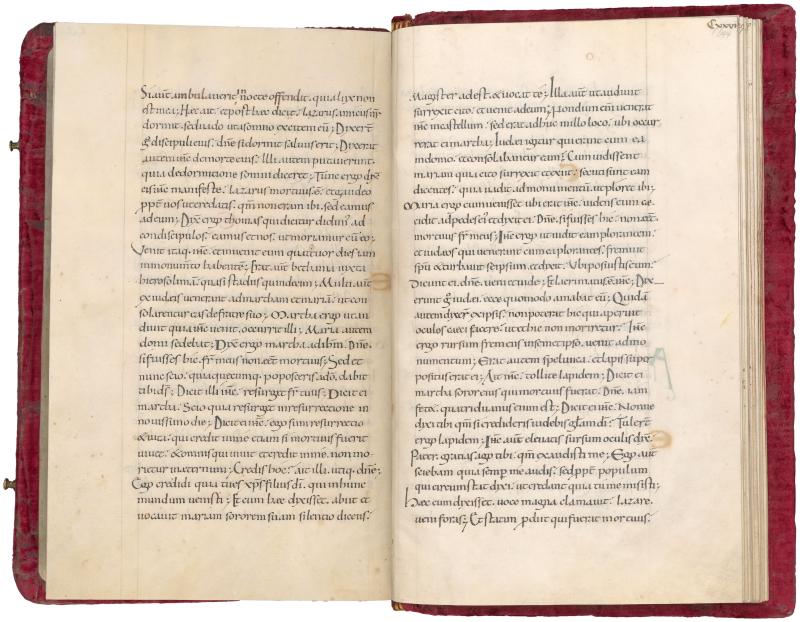 Si aūt ambulauerit nocte offendit. quia lux non
est in ea; Haec ait. et post haec dicit. lazarus amicus nr̄
dormit. sed uado ut a somno excitem eū; Dixerᷓt
ḡ discipuli eius. dn̄e si dormit saluus erit; Dixerat
autem ihc̄ de morte eius. illi autem putauerunt.
quia de dormicione somni diceret; Tunc ergo dix̄
eis ihc̄ manifeste. lazarus mortuus ē. et gaudeo
ppt̄ uos ut credatis. qm̄ non eram ibi. sed eamus
ad eum; Dix̄ ergo thomas qui dicitur didimꝰ ad
condiscipulos. eamus et nos. ut moriamur cū eo;
Venit itaq; ihc̄. et inuenit eum quattuor dies iam
in monum̄to habentē; Erat aūt bethania iuxta
hierosolimā. quasi stadiis quindecim; Multi aūt
ex iudeis uenerant ad martham et mariā. ut con
solarentur eas de fratre suo; Martha ergo ut au
diuit quia ihc̄ uenit. occurrit illi; Maria autem
domi sedebat; Dix̄ ergo martha ad ihm̄. Dn̄e.
si fuisses hic. fr̄ meus non eēt mortuus; Sed et
nunc scio. quia quaecumq; poposceris adō. dabit
tibi ds̄; Dicit illi ihc̄. resurget fr̄ tuus; Dicit ei
martha. Scio quia resurget in resurrectione in
nouissimo die; Dicit ei ihc̄. ego sum resurrectio
& uita. qui credit in me etiam si mortuus fuerit
uiuet. & omnis qui uiuit et credit in me. non mo
rietur in aeternum; Credis hoc. ait illi. utiq; dn̄e;
Ego credidi quia tu es xp̄s filius dī. qui in hunc
mundum uenisti; Et cum haec dixisset. abiit et
uocauit mariam sororem suam silentio dicens.
Cxxxiiii
Magister adest. & uocat te; Illa aūt ut audiuit
surrexit cito. et uenit ad eum; Nondum enī uenerat
ihc̄ in castellum. sed erat adhuc in illo loco. ubi occur
rerat ei martha; Iudei igitur qui erant cum ea
in domo. et consolabantur eam; Cum uidissent
mariam quia cito surrexit et exiit. secuti sunt eam
dicentes. quia uadit ad monumentum. ut ploret ibi;
Maria ergo cum uenisset ubi erat ihc̄. uidens eum ce
cidit ad pedes eiꝰ. et dixit ei. Dn̄e. si fuisses hic. non eēt
mortuus fr̄ meus; Ihc̄ ergo ut uidit eam plorantem.
et iudaeos qui uenerant cum ea plorantes. fremuit
spū et turbauit seipsum. et dixit. Vbi posuistis eum.
Dicunt ei. dn̄e. ueni et uide; Et lacrimatus ē ihc̄. Dix
erunt ḡ iudei. ecce quomodo amabat eū; Quidā
autem dixerᷓt ex ipsis. non poterat hic qui aperuit
oculos caeci facere. ut et hic non moreretur. Ihc̄
ergo rursum fremens in semetipso. uenit ad mo
numentum; Erat autem spelunca. et lapis super
positus erat ei; Ait ihc̄. tollite lapidem; Dicit ei
martha soror eius qui mortuus fuerat. Dn̄e. iam
fetet. quatriduanus enim est; Dicit ei ihc̄. Nonne
dixi tibi qm̄ si credideris uidebis gl̄am dī. Tulerᷓt
ergo lapidem; Ihc̄ aūt eleuatis sursum oculis dix̄.
Pater. gratias ago tibi. qm̄ exaudisti me; Ego aūt
sciebam quia semp̄ me audis. sed ppt̄ populum
qui circumstat dixi. ut credant quia tu me misisti;
Haec cum dixisset. uoce magna clamauit. lazare.
ueni foras; Et statim p̄diit qui fuerat mortuus.